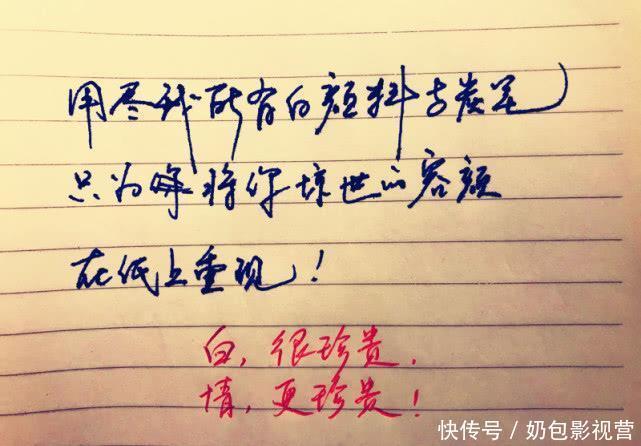 用尽我所有的颜料与炭笔
只为将你惊世的容颜
在纸上重现！
白，很珍贵．
情，更珍贵！
快传号／奶包影视营